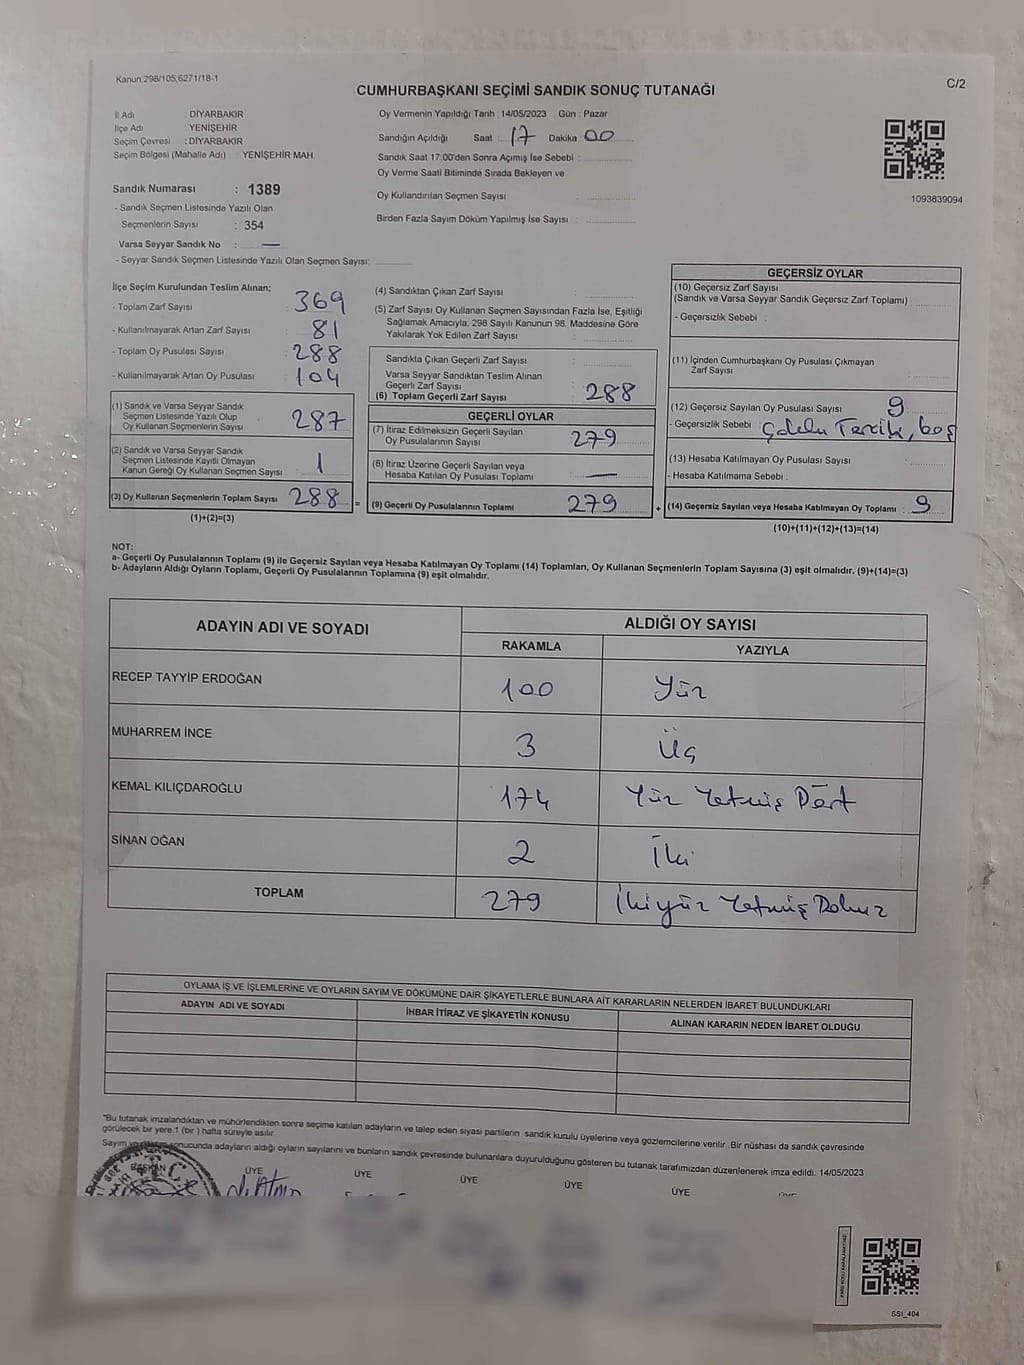 Kanun;298/105;6271/18-1
C/2
CUMHURBAŞKANI SEÇİMİ SANDIK SONUÇ TUTANAĞI
İl Adı : DİYARBAKIR
İlçe Adı : YENİŞEHİR
Seçim Çevresi : DİYARBAKIR
Seçim Bölgesi (Mahalle Adı) : YENİŞEHİR MAH.
Sandık Numarası : 1389
- Sandık Seçmen Listesinde Yazılı Olan
Seçmenlerin Sayısı : 354
Varsa Seyyar Sandık No : —
- Seyyar Sandık Seçmen Listesinde Yazılı Olan Seçmen Sayısı:
Oy Vermenin Yapıldığı Tarih : 14/05/2023 Gün : Pazar
Sandığın Açıldığı Saat : 17 Dakika : 00
Sandık Saat 17:00'den Sonra Açımış İse Sebebi :
Oy Verme Saati Bitiminde Sırada Bekleyen ve
Oy Kullandırılan Seçmen Sayısı :
Birden Fazla Sayım Döküm Yapılmış İse Sayısı :
1093839094
İlçe Seçim Kurulundan Teslim Alınan;
- Toplam Zarf Sayısı : 369
- Kullanılmayarak Artan Zarf Sayısı : 81
- Toplam Oy Pusulası Sayısı : 288
- Kullanılmayarak Artan Oy Pusulası : 104
(1) Sandık ve Varsa Seyyar Sandık
Seçmen Listesinde Yazılı Olup
Oy Kullanan Seçmenlerin Sayısı : 287
(2) Sandık ve Varsa Seyyar Sandık
Seçmen Listesinde Kayıtlı Olmayan
Kanun Gereği Oy Kullanan Seçmen Sayısı : 1
(3) Oy Kullanan Seçmenlerin Toplam Sayısı : 288 =
(1)+(2)=(3)
(4) Sandıktan Çıkan Zarf Sayısı :
(5) Zarf Sayısı Oy Kullanan Seçmen Sayısından Fazla İse, Eşitliği
Sağlamak Amacıyla; 298 Sayılı Kanunun 98. Maddesine Göre
Yakılarak Yok Edilen Zarf Sayısı :
Sandıkta Çıkan Geçerli Zarf Sayısı :
Varsa Seyyar Sandıktan Teslim Alınan
Geçerli Zarf Sayısı
(6) Toplam Geçerli Zarf Sayısı : 288
GEÇERLİ OYLAR
(7) İtiraz Edilmeksizin Geçerli Sayılan
Oy Pusulalarının Sayısı : 279
(8) İtiraz Üzerine Geçerli Sayılan veya
Hesaba Katılan Oy Pusulası Toplamı : —
(9) Geçerli Oy Pusulalarının Toplamı : 279 +
GEÇERSİZ OYLAR
(10) Geçersiz Zarf Sayısı
(Sandık ve Varsa Seyyar Sandık Geçersiz Zarf Toplamı) :
- Geçersizlik Sebebi :
(11) İçinden Cumhurbaşkanı Oy Pusulası Çıkmayan
Zarf Sayısı :
(12) Geçersiz Sayılan Oy Pusulası Sayısı : 9
- Geçersizlik Sebebi : Tercih, boş
(13) Hesaba Katılmayan Oy Pusulası Sayısı :
- Hesaba Katılmama Sebebi :
(14) Geçersiz Sayılan veya Hesaba Katılmayan Oy Toplamı : 9
(10)+(11)+(12)+(13)=(14)
NOT:
a- Geçerli Oy Pusulalarının Toplamı (9) ile Geçersiz Sayılan veya Hesaba Katılmayan Oy Toplamı (14) Toplamları, Oy Kullanan Seçmenlerin Toplam Sayısına (3) eşit olmalıdır. (9)+(14)=(3)
b- Adayların Aldığı Oyların Toplamı, Geçerli Oy Pusulalarının Toplamına (9) eşit olmalıdır.
ADAYIN ADI VE SOYADI
ALDIĞI OY SAYISI
RAKAMLA YAZIYLA
RECEP TAYYİP ERDOĞAN 100 Yüz
MUHARREM İNCE 3 Üç
KEMAL KILIÇDAROĞLU 174 Yüz Yetmiş Dört
SİNAN OĞAN 2 İki
TOPLAM 279 İkiyüz Yetmiş Dokuz
OYLAMA İŞ VE İŞLEMLERİNE VE OYLARIN SAYIM VE DÖKÜMÜNE DAİR ŞİKAYETLERLE BUNLARA AİT KARARLARIN NELERDEN İBARET BULUNDUKLARI
ADAYIN ADI VE SOYADI İHBAR İTİRAZ VE ŞİKAYETİN KONUSU ALINAN KARARIN NEDEN İBARET OLDUĞU
*Bu tutanak imzalandıktan ve mühürlendikten sonra seçime katılan adayların ve talep eden siyasi partilerin sandık kurulu üyelerine veya gözlemcilerine verilir. Bir nüshası da sandık çevresinde
görülecek bir yere 1 (bir) hafta süreyle asılır.
Sayım ve döküm sonucunda adayların aldığı oyların sayılarını ve bunların sandık çevresinde bulunanlara duyurulduğunu gösteren bu tutanak tarafımızdan düzenlenerek imza edildi. 14/05/2023
BAŞKAN ÜYE ÜYE ÜYE ÜYE ÜYE
SSI_404